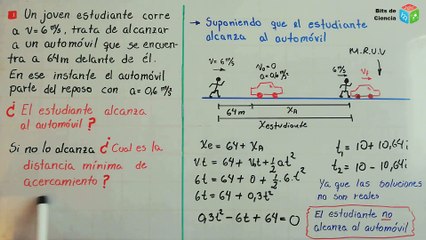 1 Un joven estudiante corre
a v = 6 m/s, trata de alcanzar
a un automóvil que se encuen-
tra a 64m delante de él.
En ese instante el automóvil
parte del reposo con a=0,6 m/s²
¿ El estudiante alcanza
al automóvil ?
Si no lo alcanza ¿ Cual es la
distancia mínima de
acercamiento ?
→ Suponiendo que el estudiante
alcanza al automóvil
Bits de
Ciencia
M.R.U.V
v = 6 m/s
v₀ = 0
a = 0,6 m/s²
6 m/s
vf
64m
XA
Xestudiante
Xe = 64 + XA
Vt = 64 + V₀t + 1/2 at²
6t = 64 + 0 + 1/2 · 6 t²
6t = 64 + 0,3t²
0,3t² - 6t + 64 = 0
t₁ = 10 + 10,64i
t₂ = 10 - 10,64i
Ya que las soluciones
no son reales
El estudiante no
alcanza al automóvil